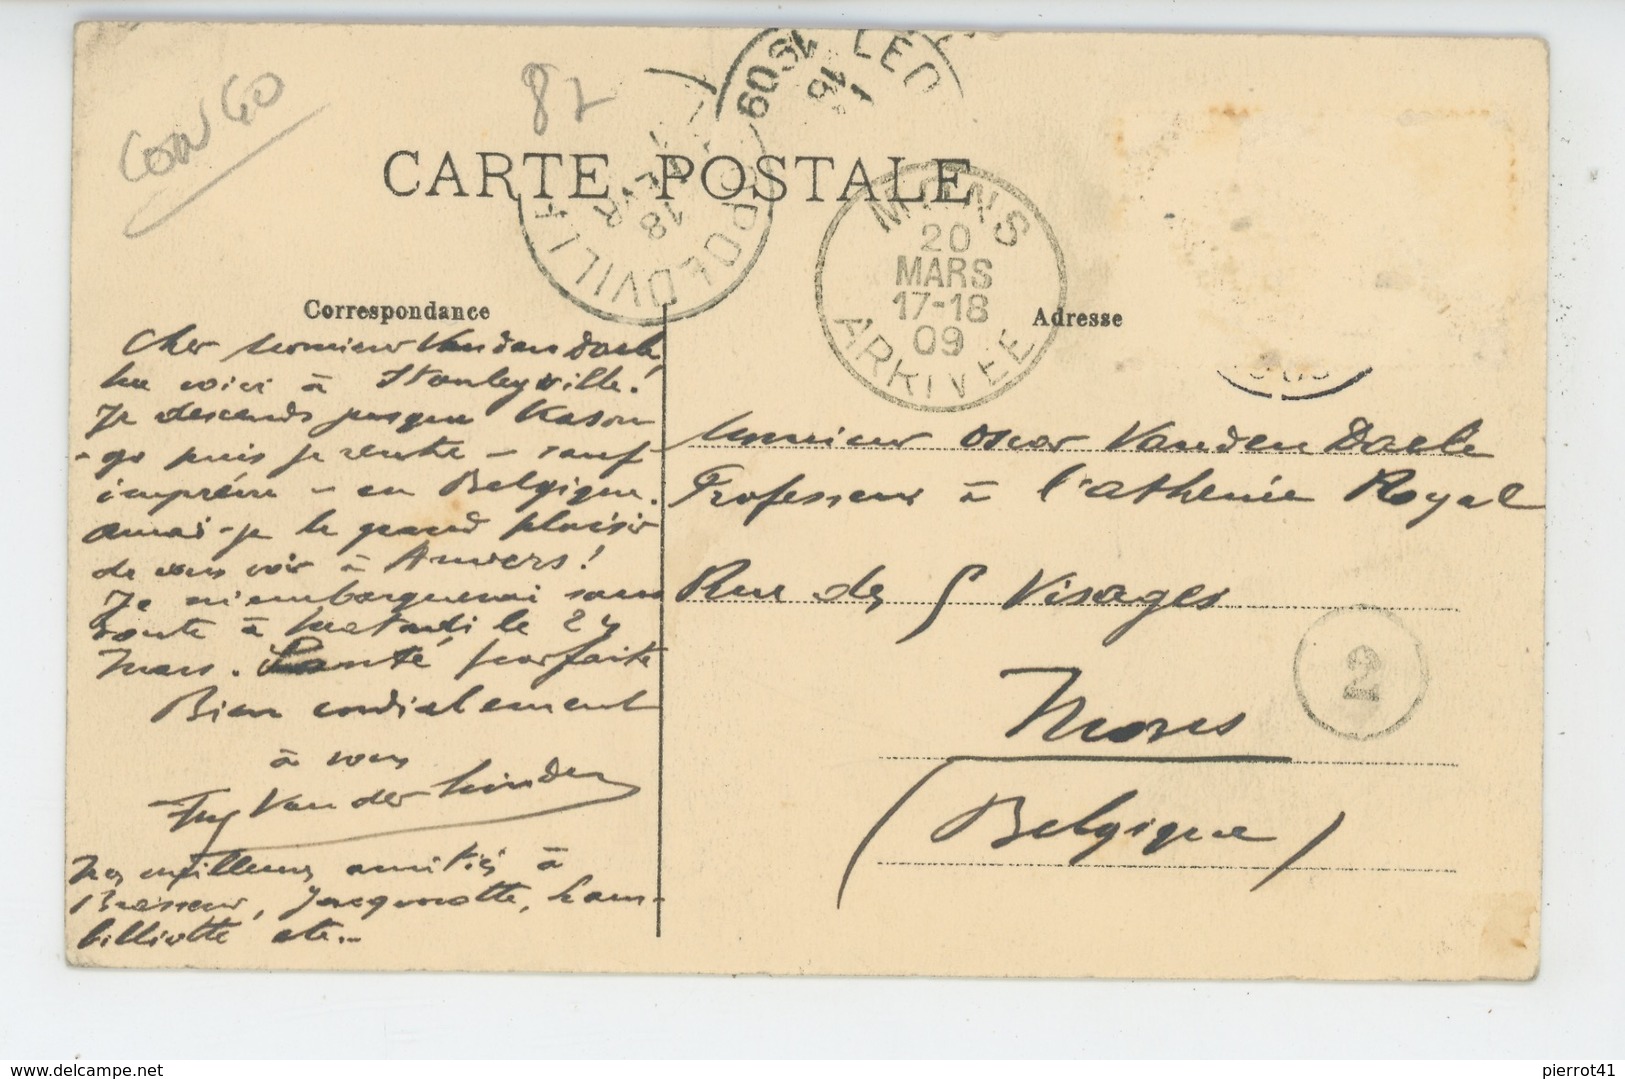 CONGO
87
CARTE POSTALE
LEOPOLDVILLE
18
1909
MONS
20
MARS
17-18
09
ARRIVEE
Correspondance
Adresse
Cher Monsieur Vanden Daele
Me voici à Stanleyville!
Je descends jusque Kason-
-go puis je rentre - sauf
imprévu - en Belgique.
aurai-je le grand plaisir
de vous voir à Anvers!
Je m'embarquerai sans
doute à Matadi le 24
Mars. Santé parfaite
Bien cordialement
à vous
Van der Linden
Mes meilleures amitiés à
Brasseur, Jacqmotte, Lam-
billiotte etc...
Monsieur Oscar Vanden Daele
Professeur à l'athénée Royal
Rue des 5 Visages
Mons
(Belgique)
2
delcampe.net
pierrot41